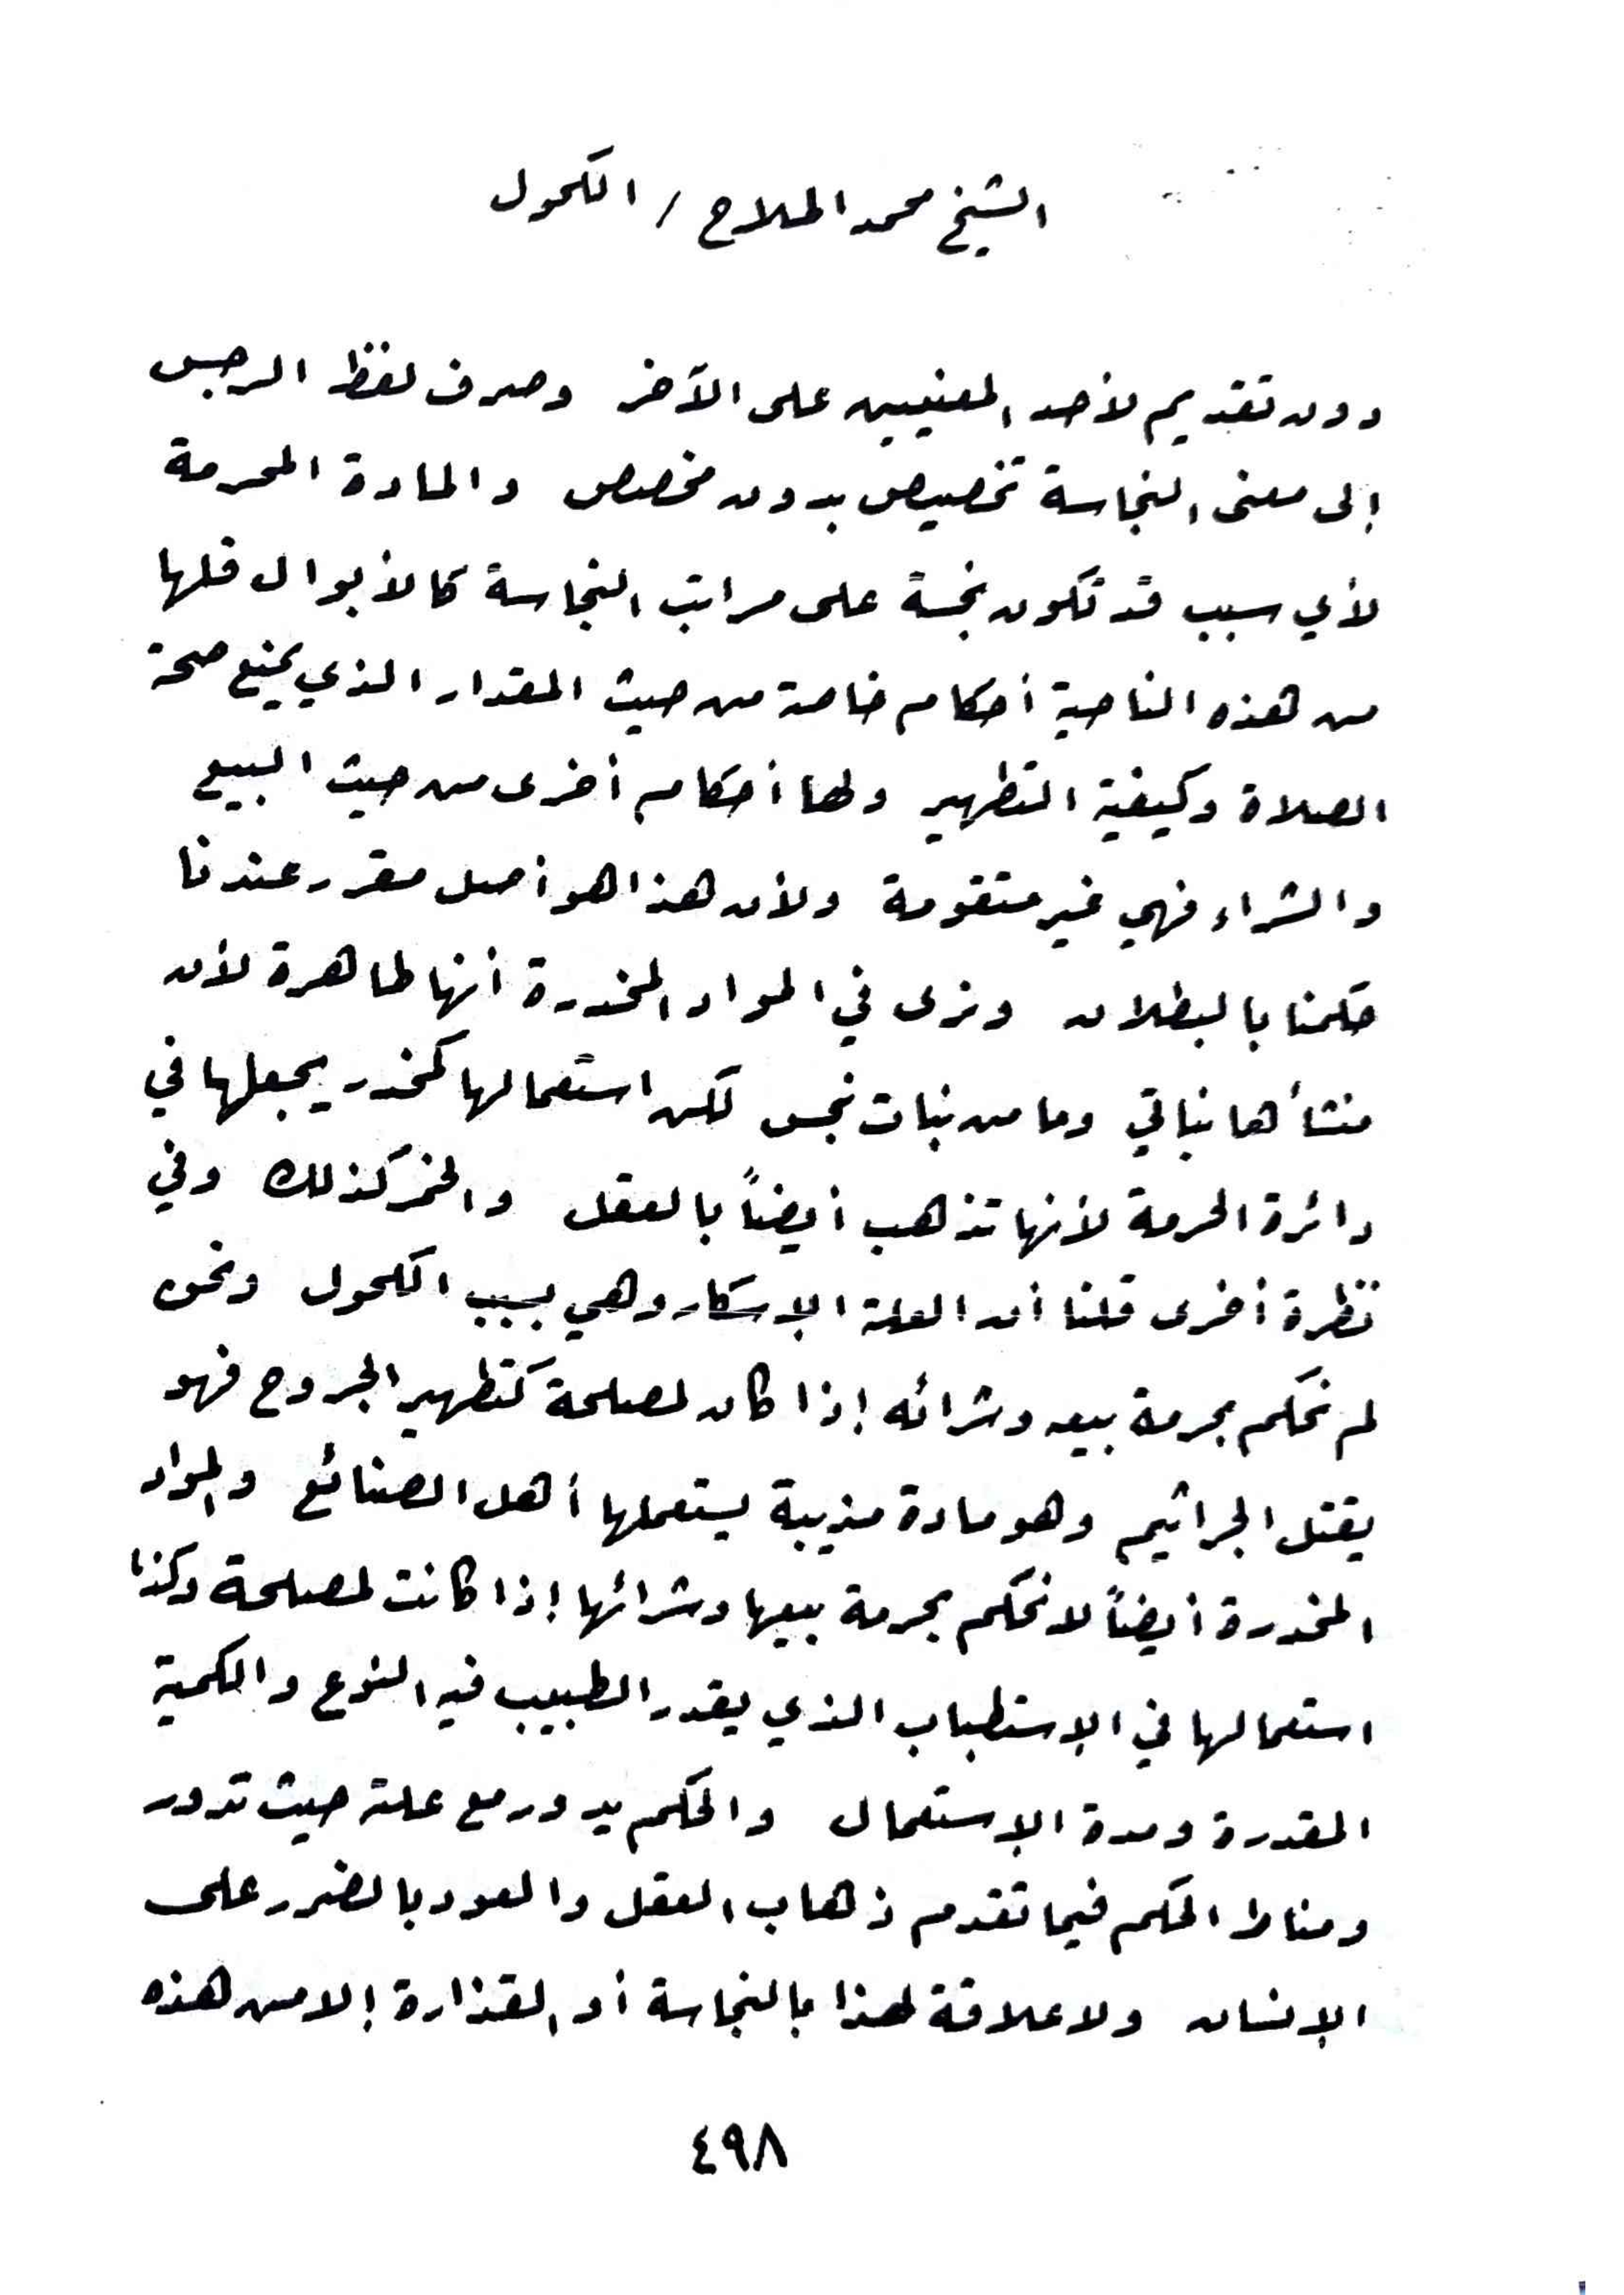 الشيخ محمد الملاح / الكحول
دون تقديم لأحد المعنيين على الآخر وصرف لفظ الرجس
إلى معنى النجاسة تخصيص بدون مخصص والمادة المحرمة
لأي سبب قد تكون نجسة على مراتب النجاسة كالأبوال فلها
من هذه الناحية أحكام خاصة من حيث المقدار الذي يمنع صحة
الصلاة وكيفية التطهير ولها أحكام أخرى من حيث البيع
والشراء فهي غير متقومة ولأن هذا هو أصل مقرر عندنا
حكمنا بالبطلان ونرى في المواد المخدرة أنها طاهرة لأن
منشأها نباتي وما من نبات نجس لكن استعمالها كمخدر يجعلها في
دائرة الحرمة لأنها تذهب أيضاً بالعقل والخمر كذلك وفي
نظرة أخرى قلنا أن العلة الإسكار وهي بسبب الكحول ونحن
لم نحكم بحرمة بيعه وشرائه إذا كان لمصلحة كتطهير الجروح فهو
يقتل الجراثيم وهو مادة مذيبة يستعملها أهل الصنائع والمواد
المخدرة أيضاً لا نحكم بحرمة بيعها وشرائها إذا كانت لمصلحة وكذا
استعمالها في الإستطباب الذي يقدر الطبيب فيه النوع والكمية
المقدرة ومدة الإستعمال والحكم يدور مع علة حيث تدور
ومناط الحكم فيما تقدم ذهاب العقل والعود بالضرر على
الإنسان ولا علاقة لهذا بالنجاسة أو القذارة إلا من هذه
٤٩٨